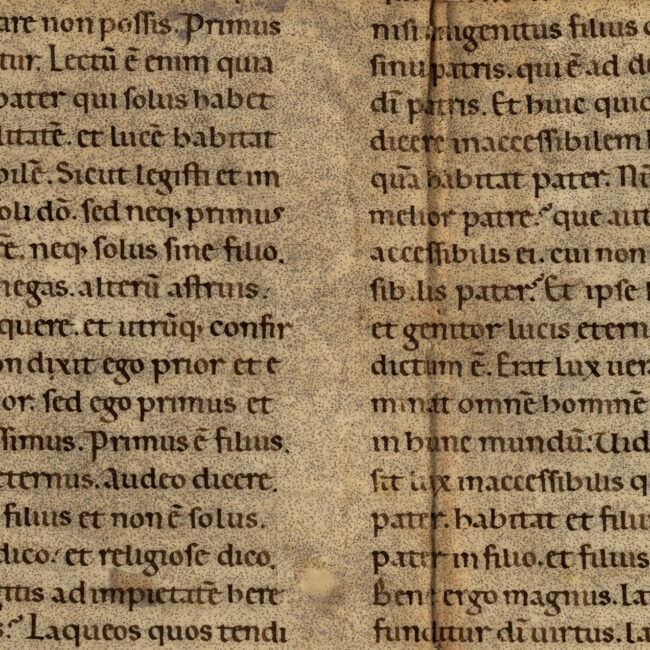 are non possis. Primus
tur. Lectū ē enim quia
pater qui solus habet
litatē. et lucē habitat
bilē. Sicut legisti et in
soli dō. sed neq; primus
rē. neq; solus sine filio.
negas. alterū astruis.
quere. et utrūq; confir
on dixit ego prior et e
or. sed ego primus et
ssimus. Primus ē filius.
eternus. Audeo dicere.
filius et non ē solus.
dico. et religiose dico.
gitis ad impietatē here
s. Laqueos quos tendi
nisi unigenitus filius
sinu patris. qui ē ad
dī patris. Et huic
dicere inaccessibilem
quā habitat pater.
melior patre. que
accessibilis ei. cui non
sibilis pater. Et ipse
et genitor lucis
dictum ē. Erat lux
minat omnē hominē
in hunc mundū.
sit lux inaccessibilis
pater. habitat et
pater in filio. et filius
Bene ergo magnus.
funditur dī uirtus.